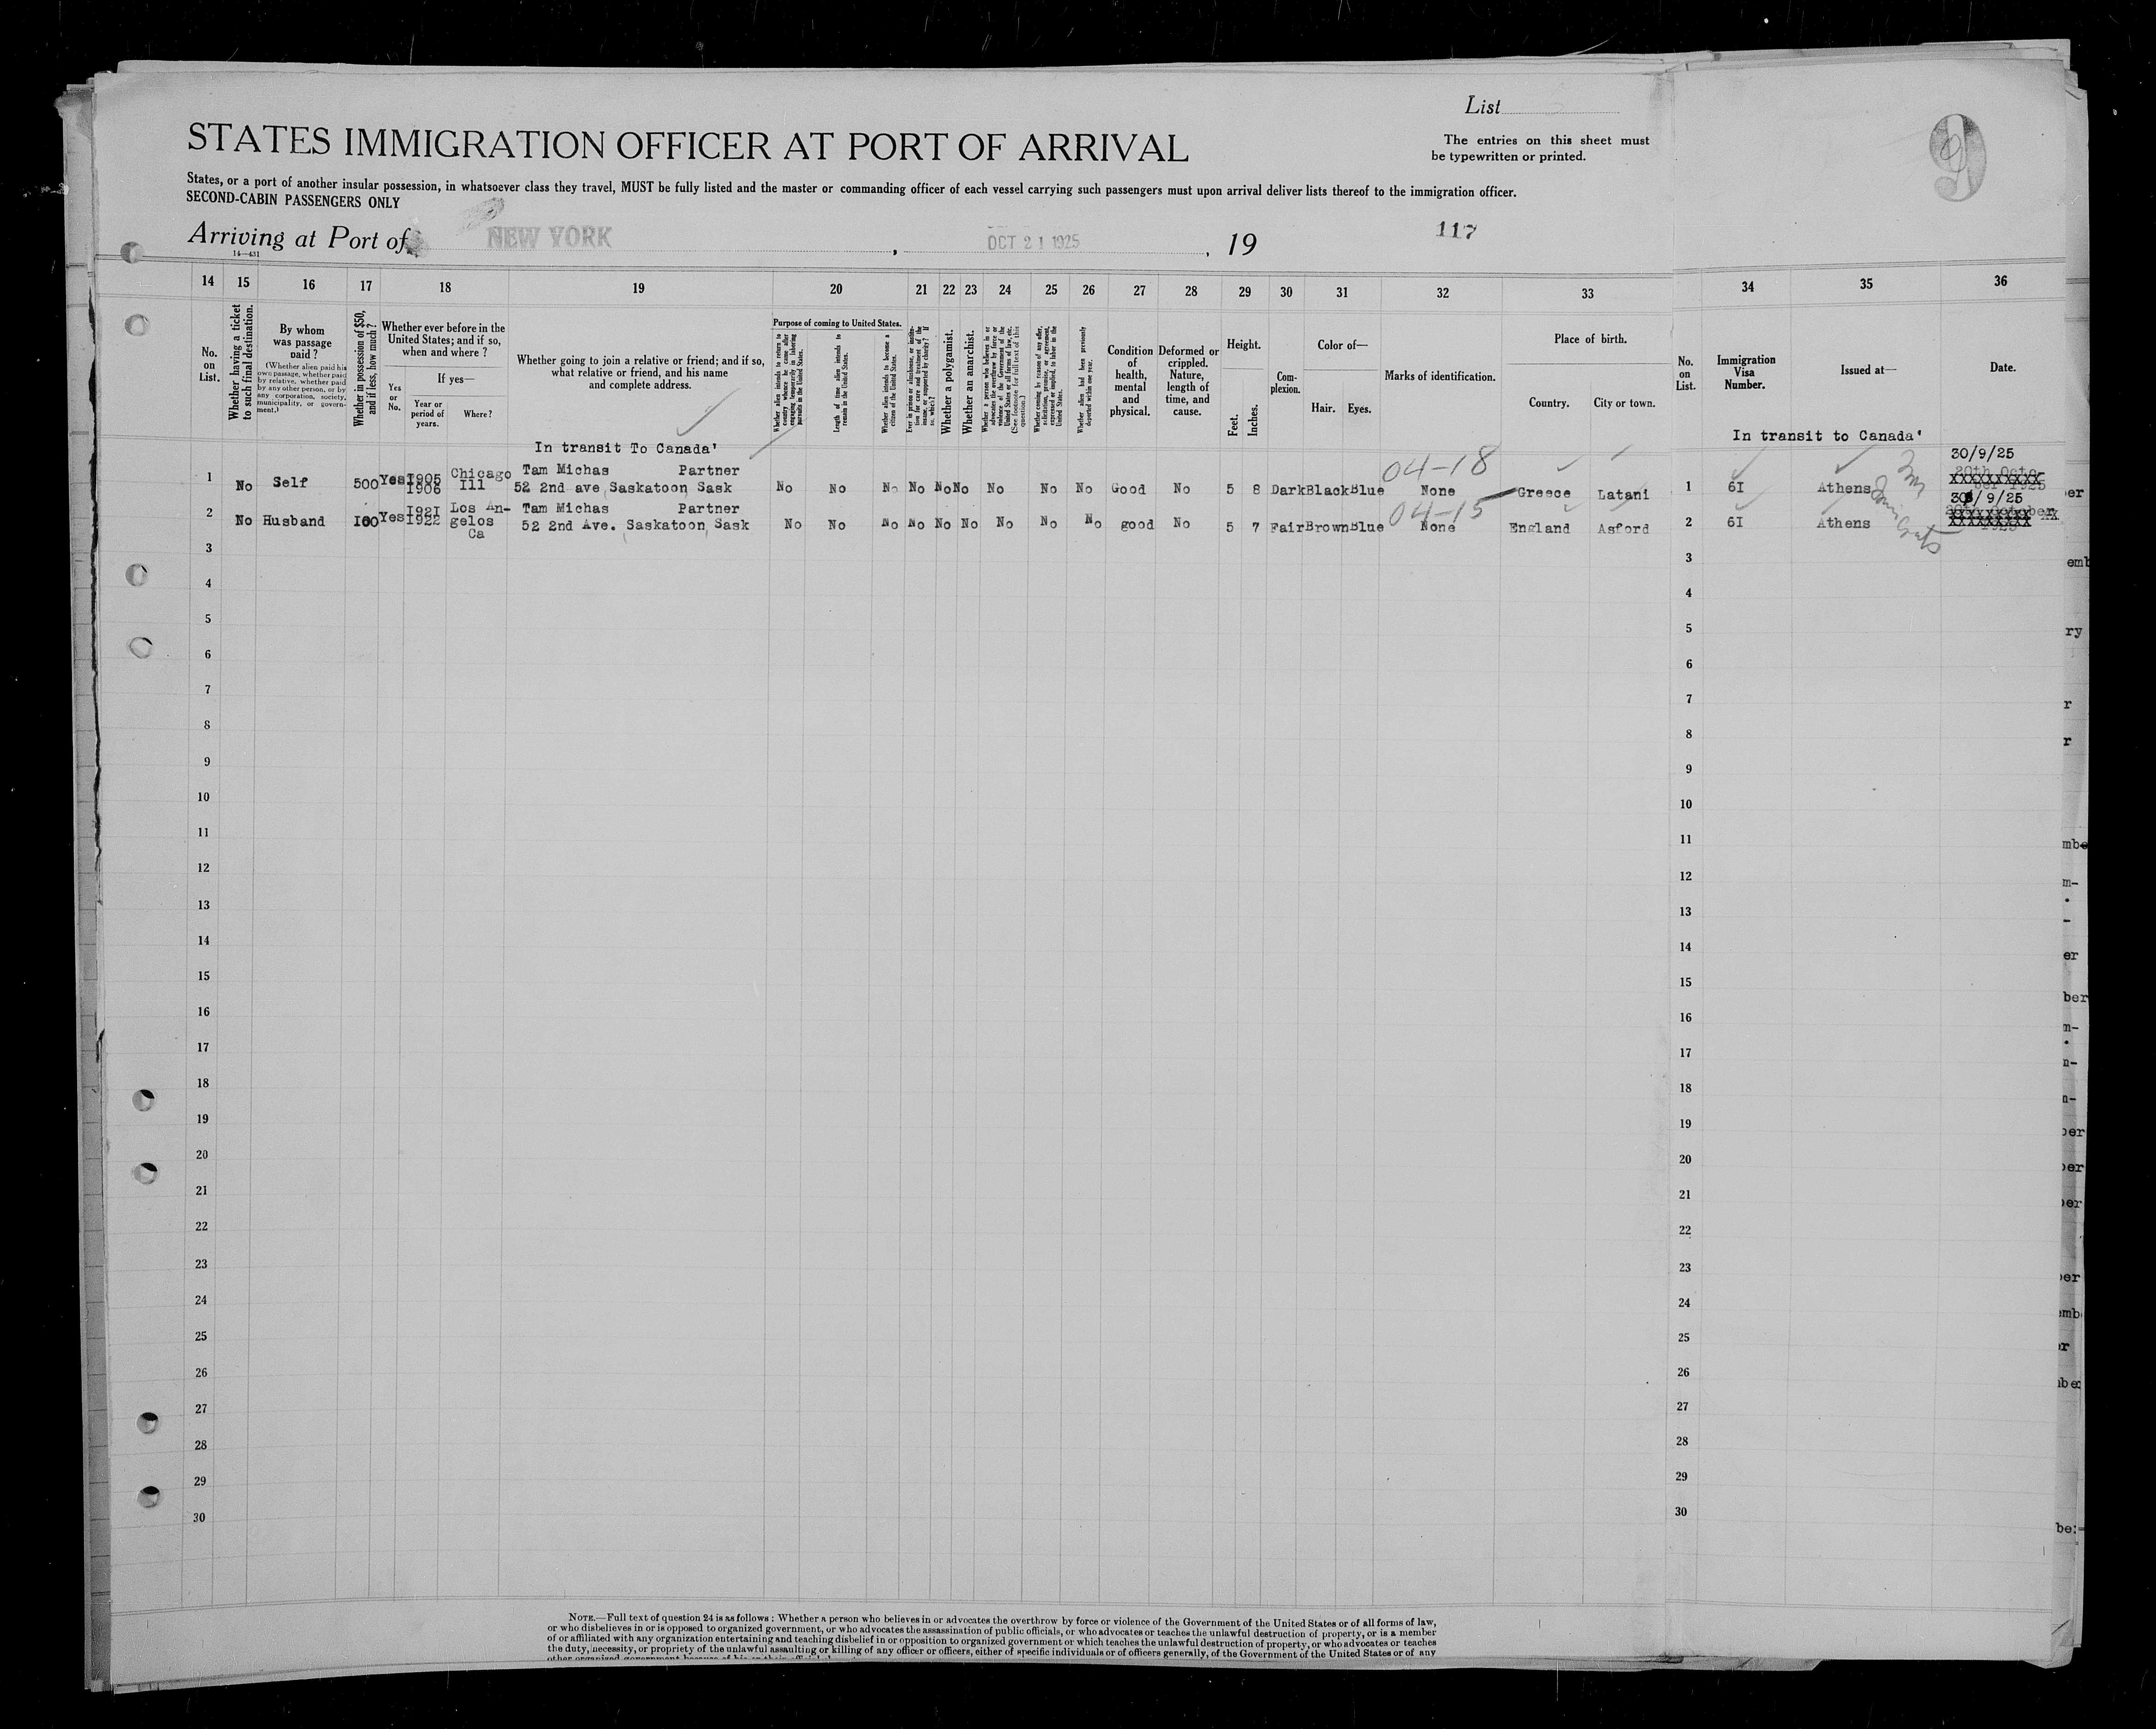 List
STATES IMMIGRATION OFFICER AT PORT OF ARRIVAL
The entries on this sheet must
be typewritten or printed.
States, or a port of another insular possession, in whatsoever class they travel, MUST be fully listed and the master or commanding officer of each vessel carrying such passengers must upon arrival deliver lists thereof to the immigration officer.
SECOND-CABIN PASSENGERS ONLY
Arriving at Port of NEW YORK , OCT 21 1925 , 19
117
14—431
14 15 16 17 18 19 20 21 22 23 24 25 26 27 28 29 30 31 32 33 34 35 36
No.
on
List.
Whether having a ticket
to such final destination.
By whom
was passage
paid?
(Whether alien paid his
own passage, whether paid
by relative, whether paid
by any other person, or by
any corporation, society,
municipality, or govern-
ment.)
Whether in possession of $50,
and if less, how much?
Whether ever before in the
United States; and if so,
when and where?
Yes
or
No.
If yes—
Year or
period of
years.
Where?
Whether going to join a relative or friend; and if so,
what relative or friend, and his name
and complete address.
Purpose of coming to United States.
Whether alien intends to return to
country whence he came after
engaging temporarily in laboring
pursuits in the United States.
Length of time alien intends to
remain in the United States.
Whether alien intends to become a
citizen of the United States.
Whether a polygamist.
Whether an anarchist.
Whether alien had been previously
deported within one year.
Condition
of
health,
mental
and
physical.
Deformed or
crippled.
Nature,
length of
time, and
cause.
Height.
Feet.
Inches.
Com-
plexion.
Color of—
Hair. Eyes.
Marks of identification.
Place of birth.
Country. City or town.
No.
on
List.
Immigration
Visa
Number.
Issued at—
Date.
In transit To Canada'
In transit to Canada'
1 No Self 500 Yes 1905 1906 Chicago Ill Tam Michas Partner
52 2nd ave Saskatoon Sask No No No No No No No No No Good No 5 8 Dark Black Blue 04-18 None Greece Latani 1 6I Athens 30/9/25
2 No Husband I00 Yes I92I 1922 Los An-
gelos
Ca
Tam Michas Partner
52 2nd Ave. Saskatoon, Sask No No No No No No No No No good No 5 7 Fair Brown Blue 04-15 None England Asford 2 6I Athens 30/9/25
3 3
4 4
5 5
6 6
7 7
8 8
9 9
10 10
11 11
12 12
13 13
14 14
15 15
16 16
17 17
18 18
19 19
20 20
21 21
22 22
23 23
24 24
25 25
26 26
27 27
28 28
29 29
30 30
NOTE.—Full text of question 24 is as follows: Whether a person who believes in or advocates the overthrow by force or violence of the Government of the United States or of all forms of law,
or who disbelieves in or is opposed to organized government, or who advocates the assassination of public officials, or who advocates or teaches the unlawful destruction of property, or is a member
of or affiliated with any organization entertaining and teaching disbelief in or opposition to organized government or which teaches the unlawful destruction of property, or who advocates or teaches
the duty, necessity, or propriety of the unlawful assaulting or killing of any officer or officers, either of specific individuals or of officers generally, of the Government of the United States or of any